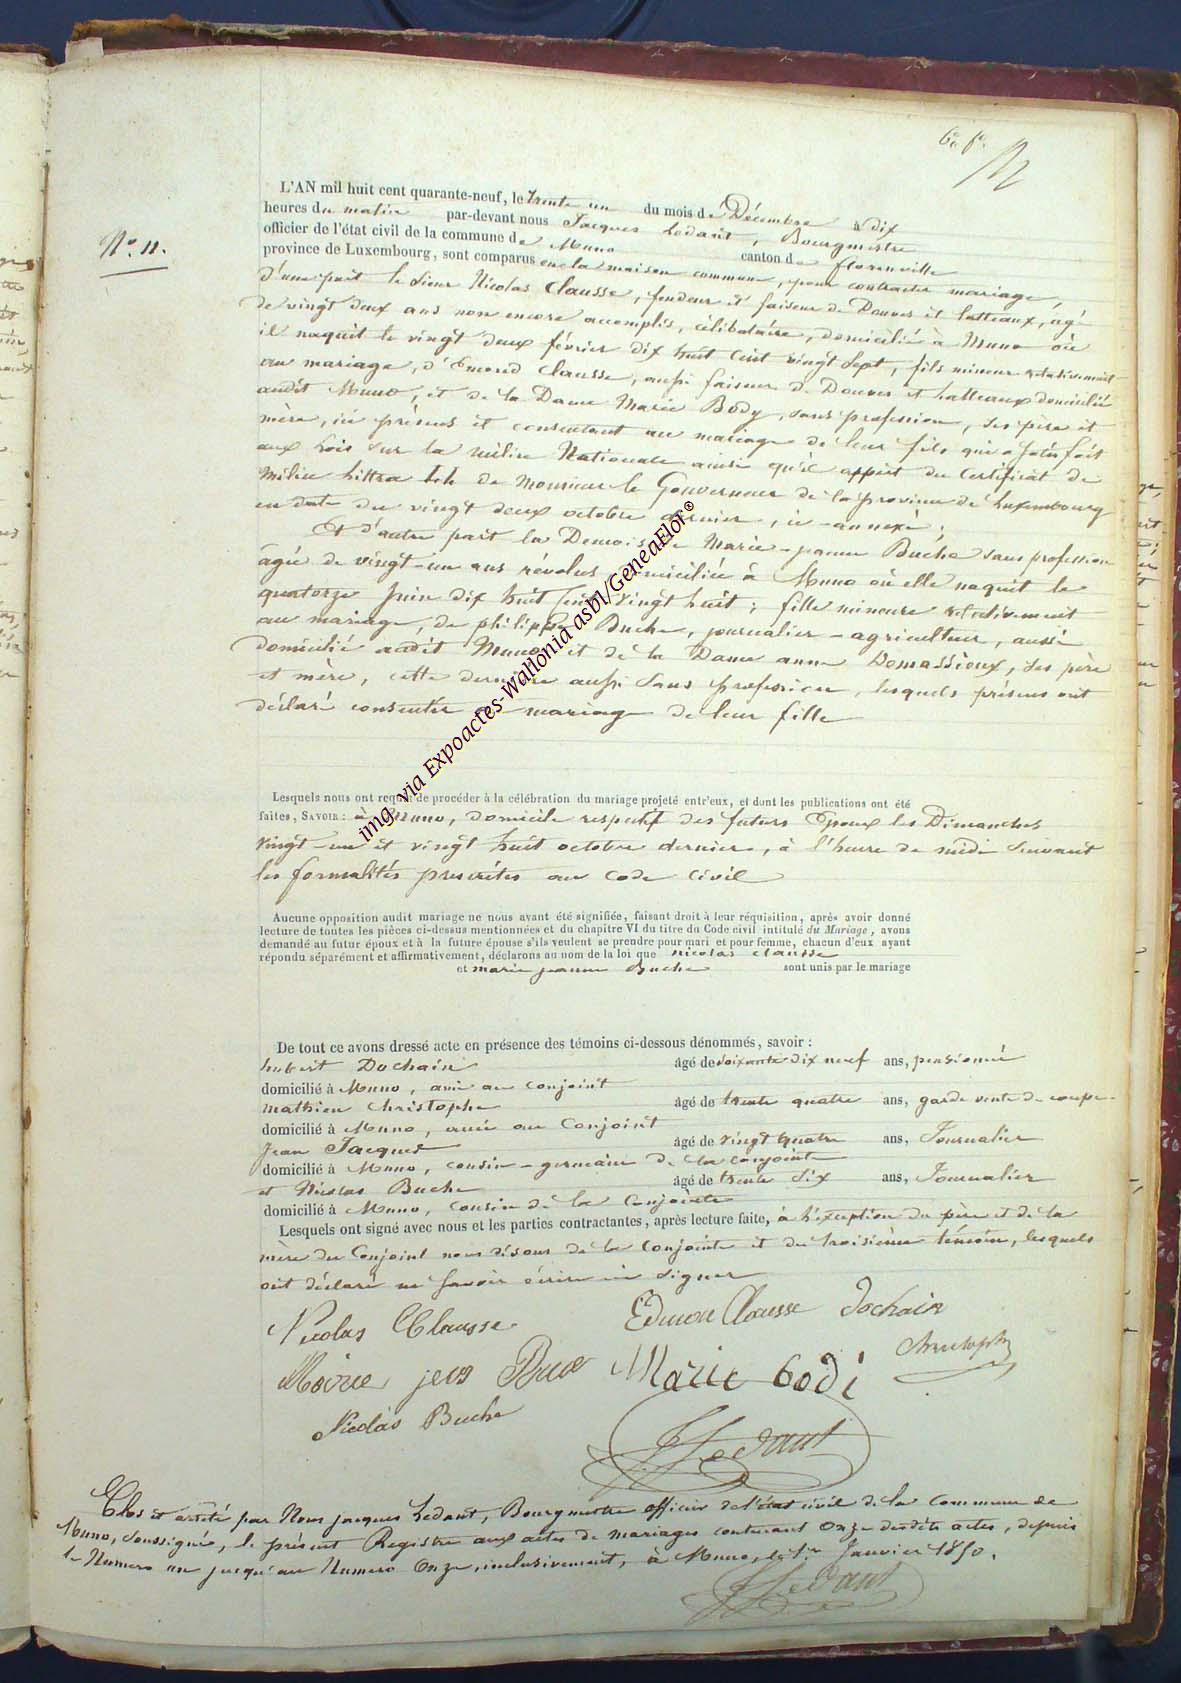 6e fe.
N° 11.
L'AN mil huit cent quarante-neuf, le trente un du mois de Décembre à dix
heures du matin par-devant nous Jacques Ledant, Bourgmestre
officier de l'état civil de la commune de Muno canton de florenville
province de Luxembourg, sont comparus en la maison commune, pour contracter mariage,
d'une part le Sieur Nicolas Clausse, fendeur et faiseur de Douves et latteaux, agé
de vingt deux ans non encore accomplis, célibataire, domicilié à Muno où
il naquit le vingt deux février dix huit cent vingt sept, fils mineur relativement
au mariage, d'Emond Clausse, aussi faiseur de Douves et Latteaux domicilié
audit Muno, et de la Dame Marie Body, sans profession, ses père et
mère, ici présens et consentant au mariage de leur fils qui a satisfait
aux Lois sur la milice Nationale ainsi qu'il appert du Certificat de
Milice littra de Monsieur le Gouverneur de la province de Luxembourg
en date du vingt deux octobre dernier, ci-annexé;
Et d'autre part la Demoiselle Marie-jeanne Buche sans profession
âgée de vingt-un ans révolus domiciliée à Muno où elle naquit le
quatorze Juin dix huit Cent vingt huit; fille mineure relativement
au mariage, de philippe Buche, journalier-agriculteur, aussi
domicilié audit Muno et de la Dame anne Domassieux, ses père
et mère, cette dernière aussi sans profession, lesquels présens ont
déclaré consentir au mariage de leur fille
Lesquels nous ont requis de procéder à la célébration du mariage projeté entr'eux, et dont les publications ont été
faites, SAVOIR: à Muno, domicile respectif des futurs Epoux les Dimanches
vingt-un et vingt huit octobre dernier, à l'heure de midi suivant
les formalités prescrites au code civil
Aucune opposition audit mariage ne nous ayant été signifiée, faisant droit à leur réquisition, après avoir donné
lecture de toutes les pièces ci-dessus mentionnées et du chapitre VI du titre du Code civil intitulé du Mariage, avons
demandé au futur époux et à la future épouse s'ils veulent se prendre pour mari et pour femme, chacun d'eux ayant
répondu séparément et affirmativement, déclarons au nom de la loi que nicolas clausse
et marie jeanne Buche sont unis par le mariage
De tout ce avons dressé acte en présence des témoins ci-dessous dénommés, savoir :
hubert Dochain âgé de soixante dix neuf ans, pensionné
domicilié à Muno, ami au conjoint
mathieu Christophe âgé de trente quatre ans, garde vente de coupe
domicilié à Muno, ami au Conjoint
Jean Jacques âgé de vingt quatre ans, Journalier
domicilié à Muno, cousin-germain de la conjointe
et Nicolas Buche âgé de trente six ans, Journalier
domicilié à Muno, cousin de la Conjointe
Lesquels ont signé avec nous et les parties contractantes, après lecture faite, à l'exception du père et de la
mère du Conjoint nous disons de la Conjointe et du troisième témoin, lesquels
ont déclaré ne savoir écrire ni signer
Nicolas Clausse Edmon Clausse Dochain
Christophe
Marie Bodi
Nicolas Buche
J Ledant
Clos et arrêté par Nous jacques Ledant, Bourgmestre officier de l'état civil de la Commune de
Muno, soussigné, le présent Registre aux actes de mariages contenant Onze desdits actes, depuis
le Numero un jusqu'au Numero Onze, inclusivement, à Muno, le 1er Janvier 1850.
J Ledant
img via Expoactes-Wallonia asbl/GeneaFlor©